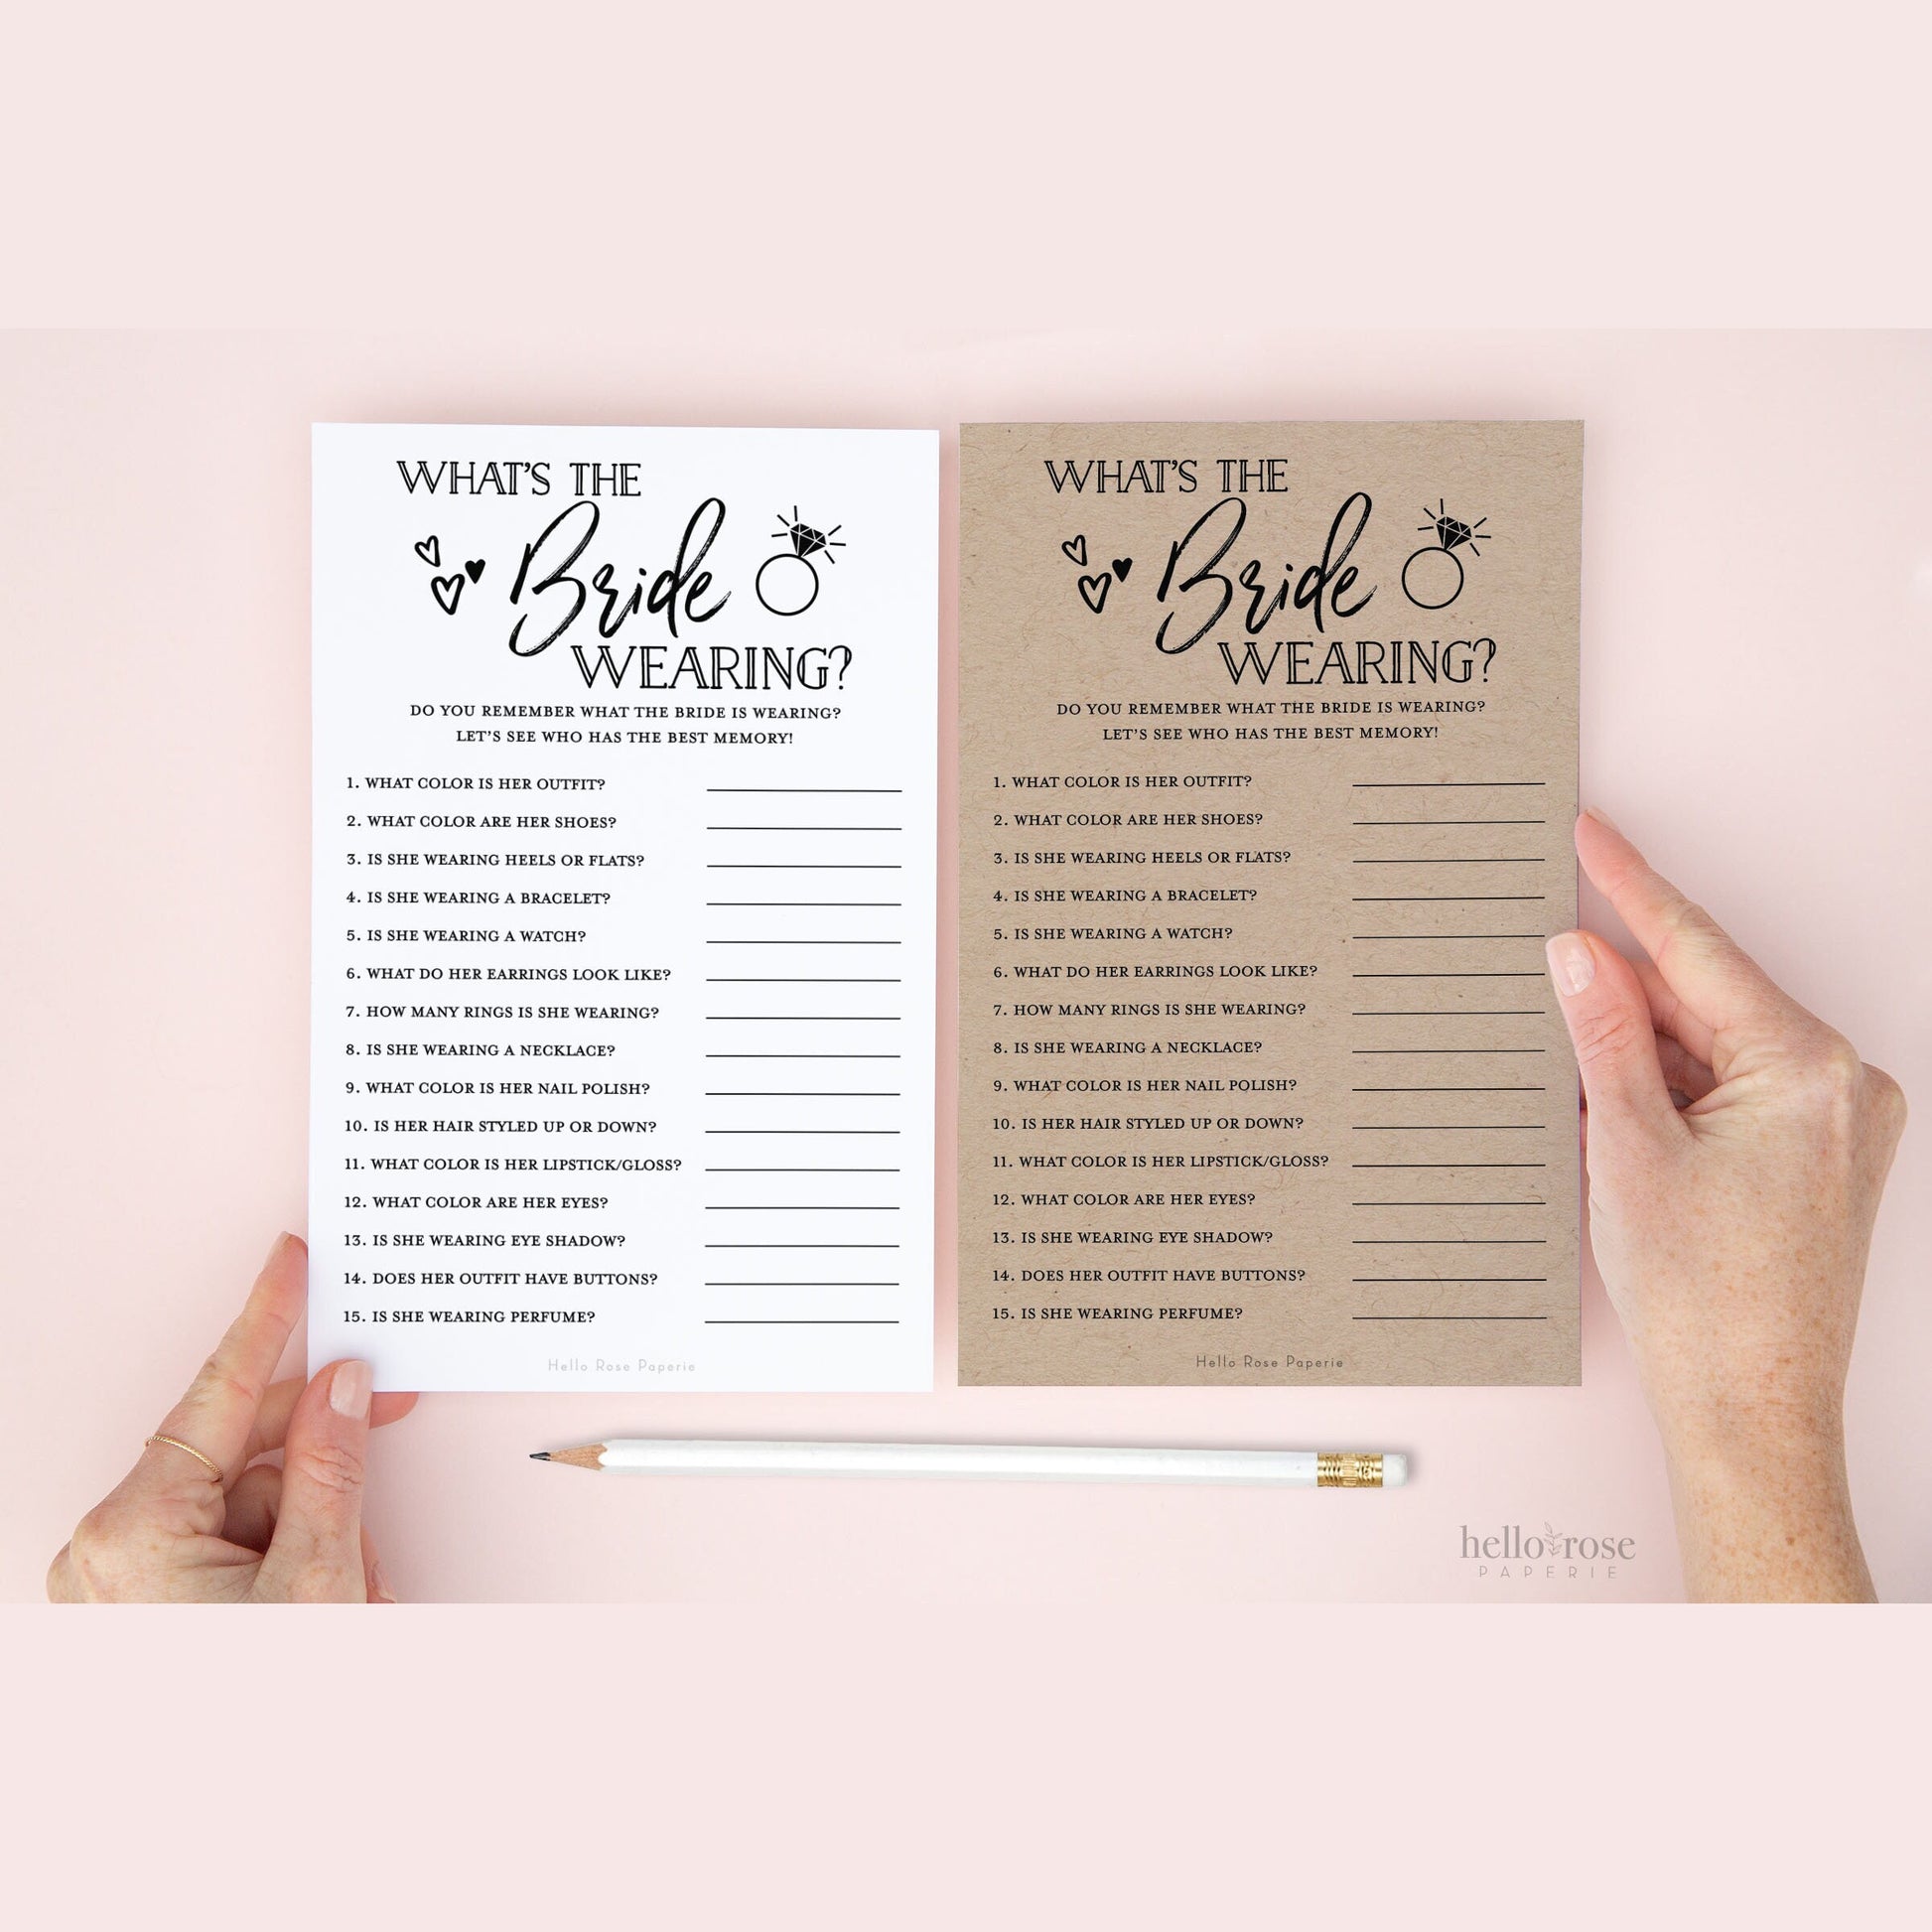 WHAT'S THE
Bride
WEARING?
DO YOU REMEMBER WHAT THE BRIDE IS WEARING?
LET'S SEE WHO HAS THE BEST MEMORY!
1. WHAT COLOR IS HER OUTFIT?
2. WHAT COLOR ARE HER SHOES?
3. IS SHE WEARING HEELS OR FLATS?
4. IS SHE WEARING A BRACELET?
5. IS SHE WEARING A WATCH?
6. WHAT DO HER EARRINGS LOOK LIKE?
7. HOW MANY RINGS IS SHE WEARING?
8. IS SHE WEARING A NECKLACE?
9. WHAT COLOR IS HER NAIL POLISH?
10. IS HER HAIR STYLED UP OR DOWN?
11. WHAT COLOR IS HER LIPSTICK/GLOSS?
12. WHAT COLOR ARE HER EYES?
13. IS SHE WEARING EYE SHADOW?
14. DOES HER OUTFIT HAVE BUTTONS?
15. IS SHE WEARING PERFUME?
Hello Rose Paperie
WHAT'S THE
Bride
WEARING?
DO YOU REMEMBER WHAT THE BRIDE IS WEARING?
LET'S SEE WHO HAS THE BEST MEMORY!
1. WHAT COLOR IS HER OUTFIT?
2. WHAT COLOR ARE HER SHOES?
3. IS SHE WEARING HEELS OR FLATS?
4. IS SHE WEARING A BRACELET?
5. IS SHE WEARING A WATCH?
6. WHAT DO HER EARRINGS LOOK LIKE?
7. HOW MANY RINGS IS SHE WEARING?
8. IS SHE WEARING A NECKLACE?
9. WHAT COLOR IS HER NAIL POLISH?
10. IS HER HAIR STYLED UP OR DOWN?
11. WHAT COLOR IS HER LIPSTICK/GLOSS?
12. WHAT COLOR ARE HER EYES?
13. IS SHE WEARING EYE SHADOW?
14. DOES HER OUTFIT HAVE BUTTONS?
15. IS SHE WEARING PERFUME?
Hello Rose Paperie
hello rose
PAPERIE